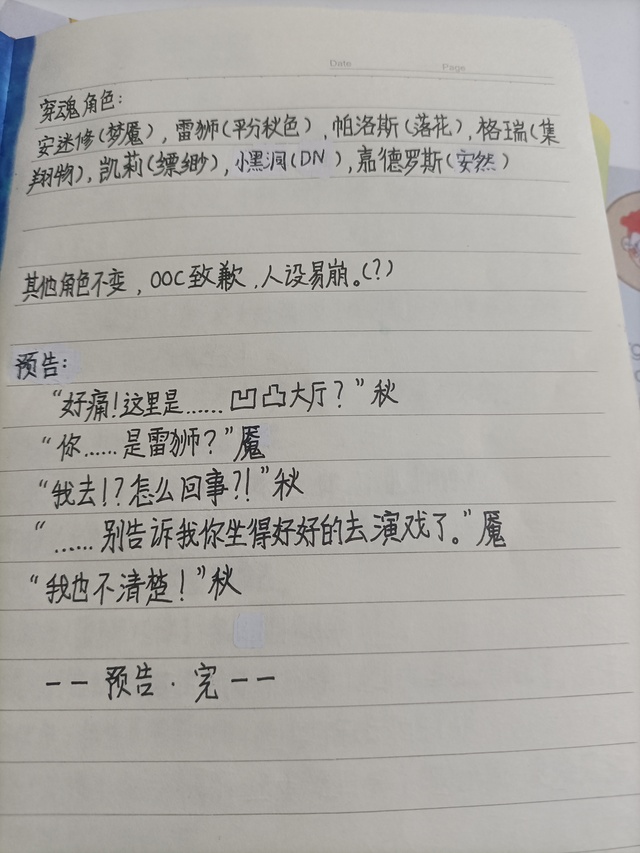 Date Page
穿魂角色：
安迷修(梦魇)，雷狮(平分秋色)，帕洛斯(落花)，格瑞(集
翔物)，凯莉(缥缈)，小黑洞(DN)，嘉德罗斯(安然)
其他角色不变，OOC致歉，人设易崩。(？)
预告：
“好痛！这里是……凹凸大厅？”秋
“你……是雷狮？”魇
“我去！？怎么回事？！”秋
“……别告诉我你坐得好好的去演戏了。”魇
“我也不清楚！”秋
——预告·完——